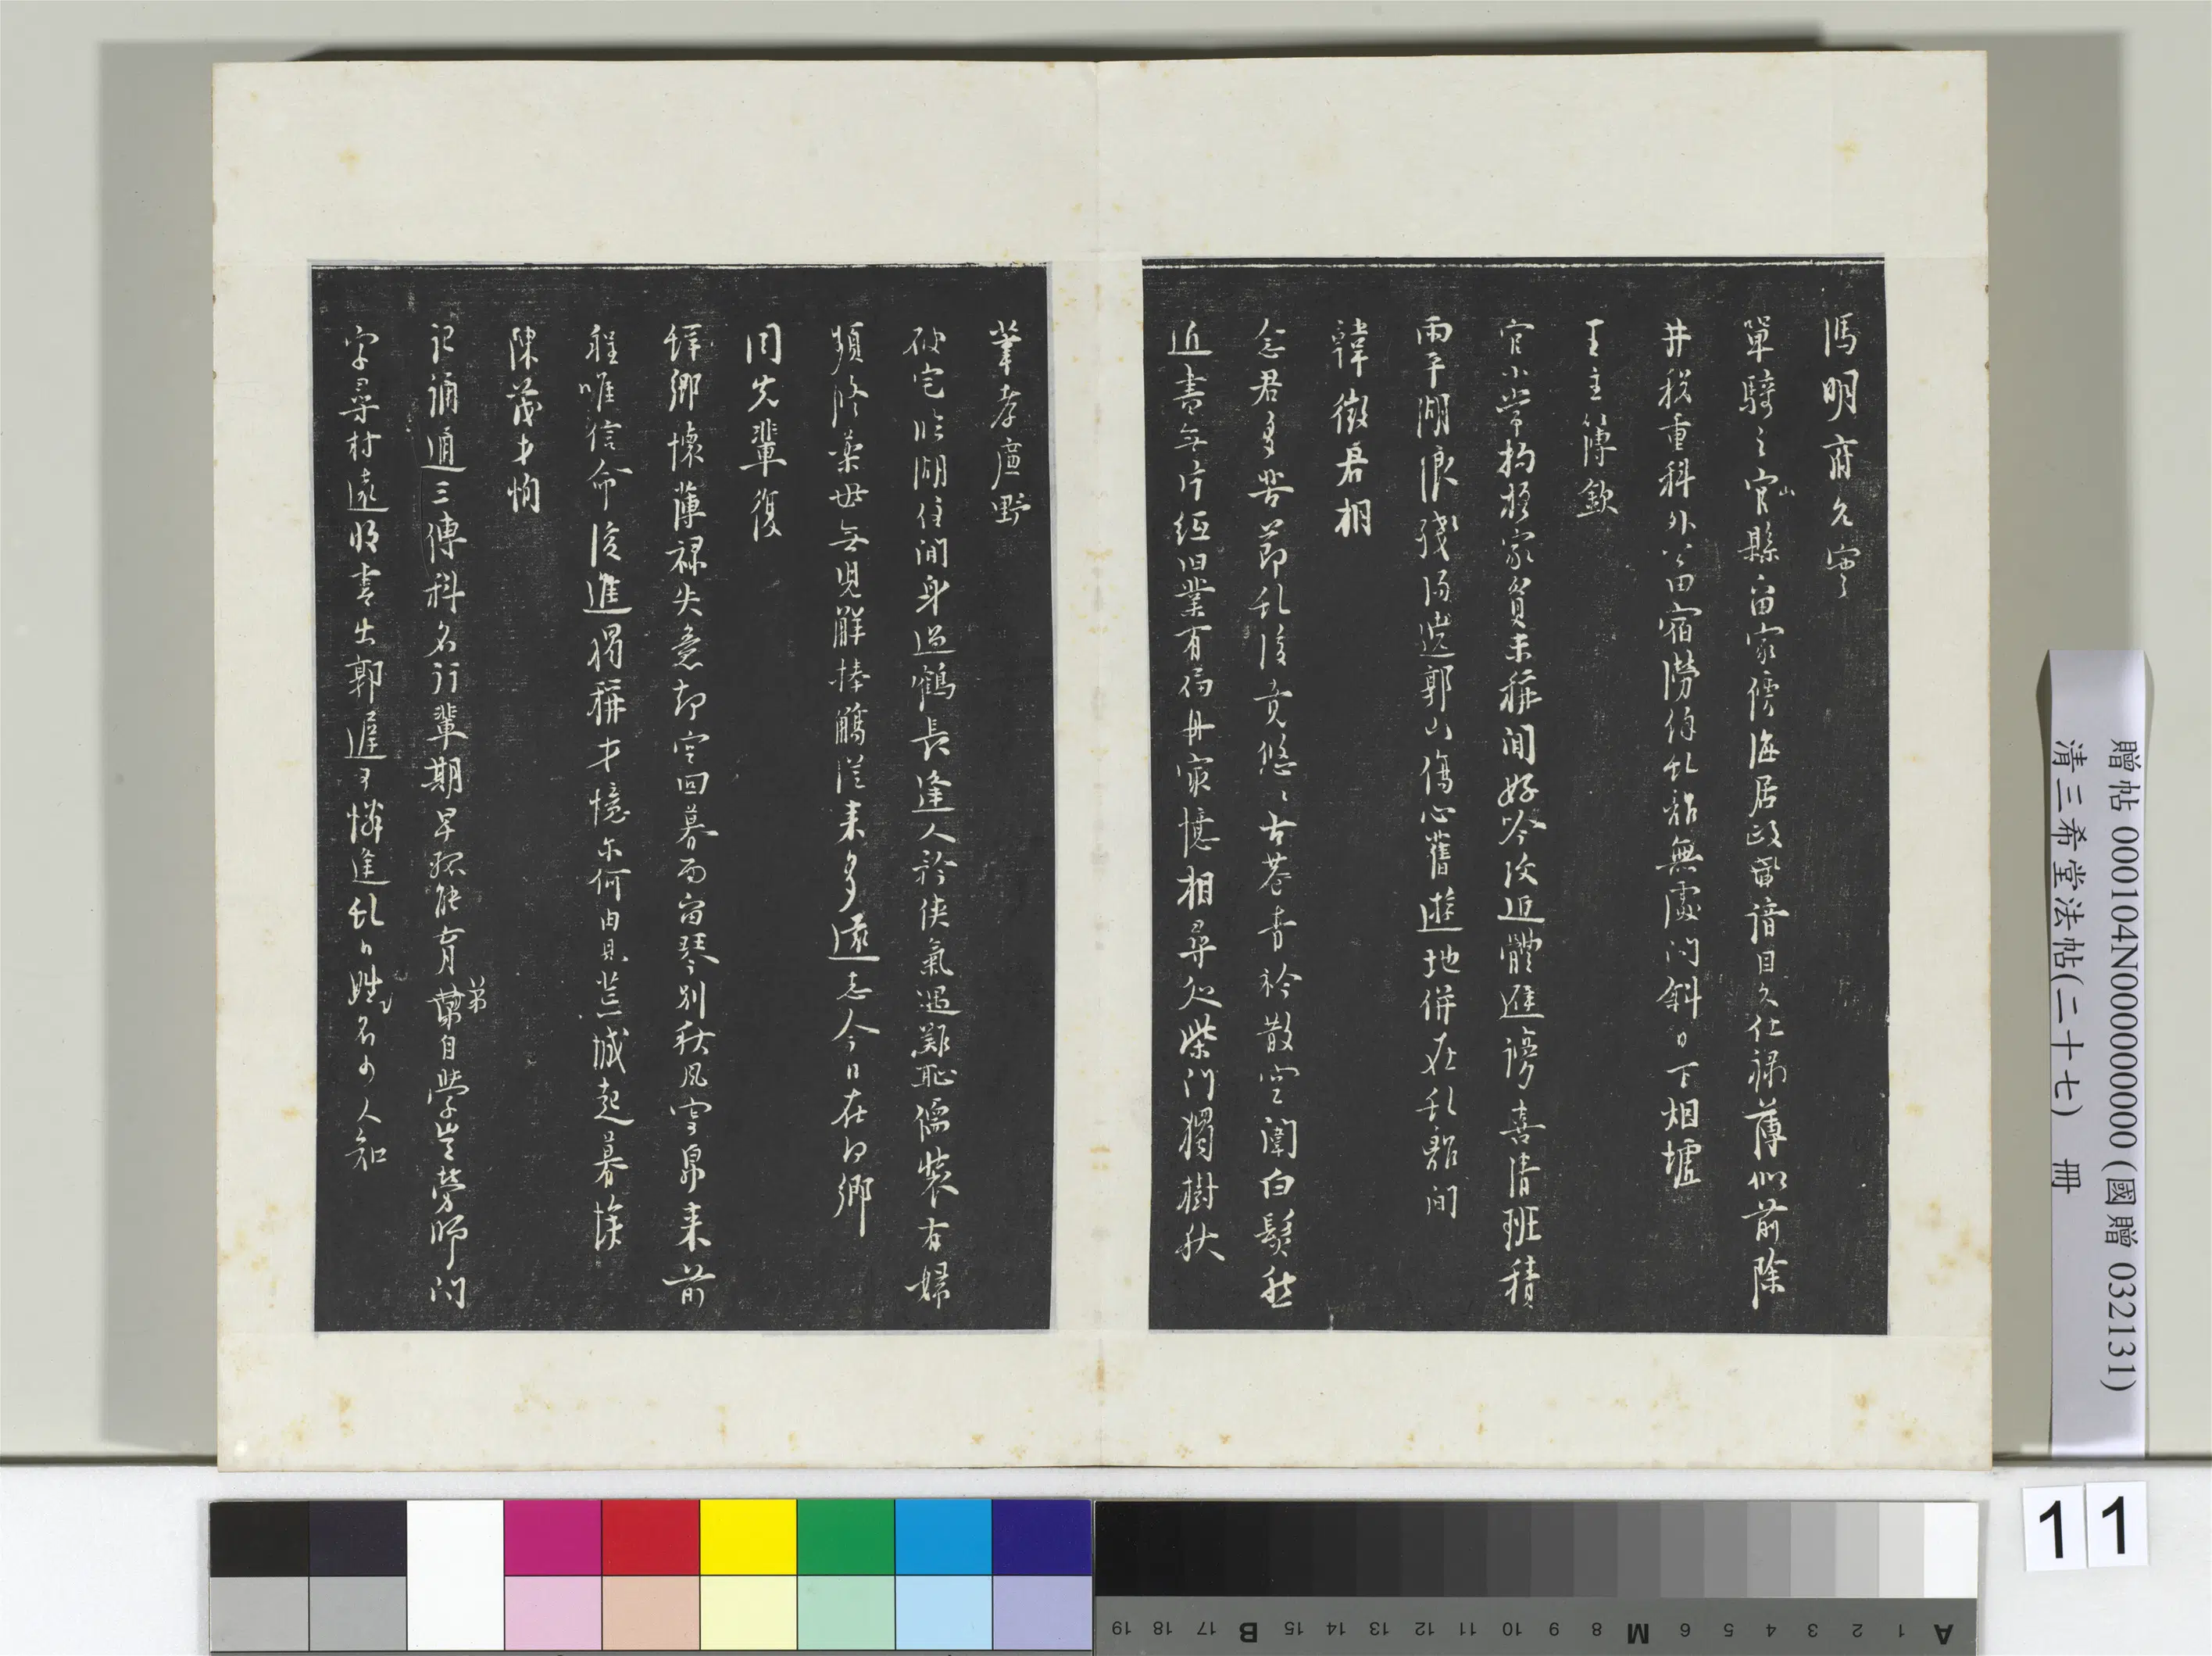 馮明府允寧
單騎之官縣留家傍海居政聲諳日久仕祿薄似前除
井稅重科外公田宿澇餘乱離無處問斜日下烟墟
王主簿欽
官小常拘於家貧未稱閒好吟改近體進謗喜清班積
雨平湖浪殘陽遶郭山傷心舊遊地併在乱離間
韓徵君相
念君多苦節乱後意悠〻古巷青衿散空闈白髮愁
近書無片紙旧業有扁舟家憶相尋處柴門獨樹秋
孝廉野
破宅臨湖住閒身過鶴長逢人矜俠氣遇難恥儒裝有婦
頻修藥無兒解捧觴從來多遠志今日在何鄉
周先輩復
辭鄉懷薄祿失意却空回暮雨留琴別秋風寄帛來前
程唯信命後進獨稱才憶尔何由見荒城起暮埃
陳茂才恂
記誦通三傳科名行輩期早孤能育弟自學豈勞師問
字尋村遠收書出郭遲可憐逢乱日姓名少人知
贈帖 000104N000000000 (國贈 032131)
清三希堂法帖(二十七) 冊
11
A 1 2 3 4 5 6 M 8 9 10 11 12 13 14 15 B 17 18 19